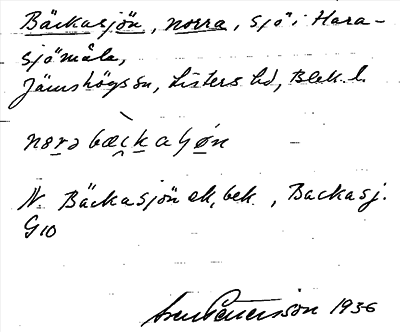 Bäckasjön, norra, sjö i Hara-
sjömåla,
Jämshögs sn, Listers hd, Blek. l.
norə bæ̀kaʃøn
N. Bäckasjön ek, bek., Backasj.
G10
Sven Pettersson 1936